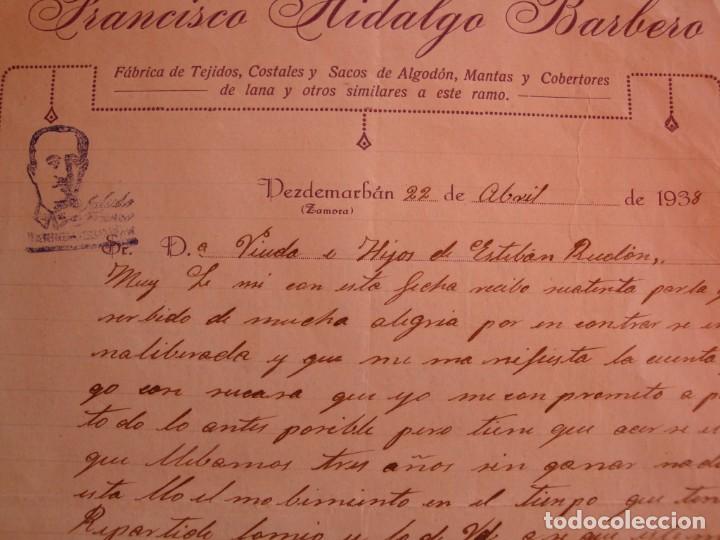 Francisco Hidalgo Barbero
Fábrica de Tejidos, Costales y Sacos de Algodón, Mantas y Cobertores
de lana y otros similares a este ramo.
Vezdemarbán 22 de Abril de 1938
(Zamora)
Saludo
a Franco
Sr. D.a Viuda e Hijos de Esteban Rudón,
Muy Le mi con esta fecha recibo su atenta
serbido de mucha alegria por en contrar se en
naliberada y que me manifiesta la cuenta
go con sucasa que yo me con prometo a p
todo lo antes posible pero tiene que acer se
que llebamos tres años sin ganar nad
esta llo el mobimiento en el tiempo que ten
Repartido y lo de Vd a se que
todocoleccion
todocoleccion.net